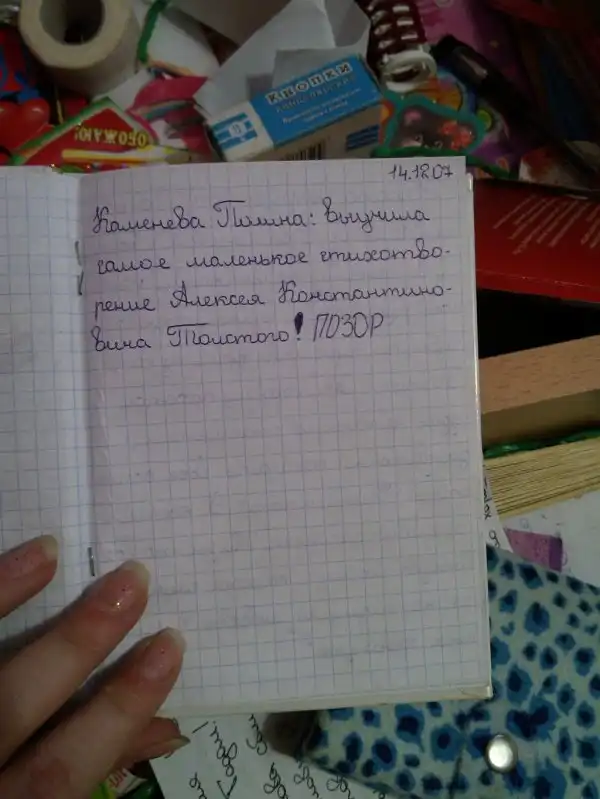 КНОПКИ
КАНЦЕЛЯРСКИЕ
ОБОЖАЮ!
14.12.07
Каменева Полина: Выучила
самое маленькое стихотво-
рение Алексея Константино-
вича Толстого! ПОЗОР